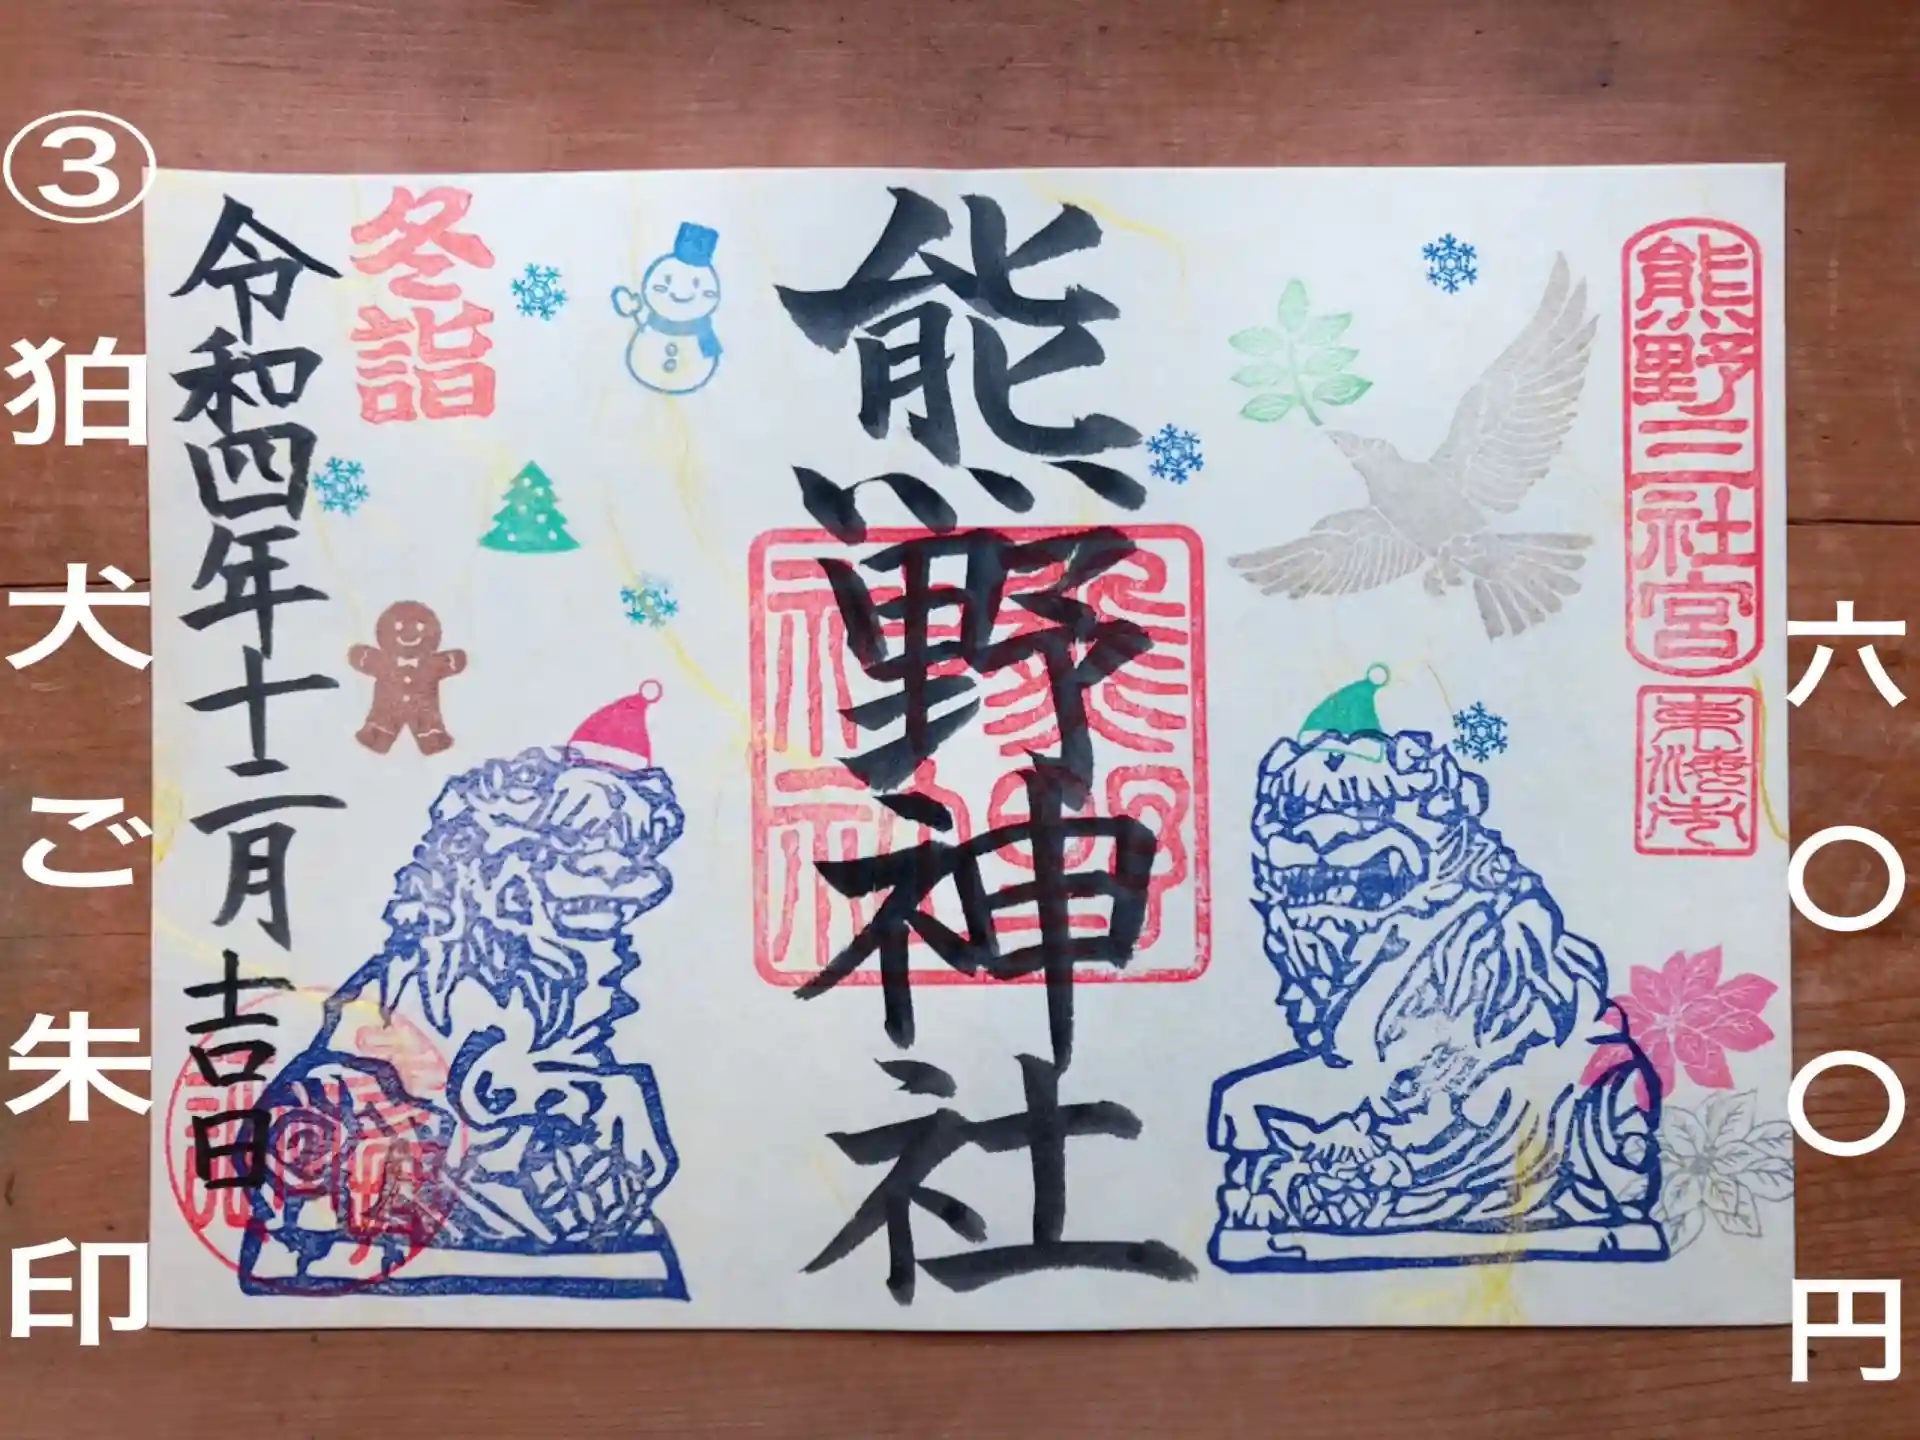 ③狛犬ご朱印
六〇〇円
熊野三社宮
熊野神社
熊野神社
冬詣
令和四年十二月吉日